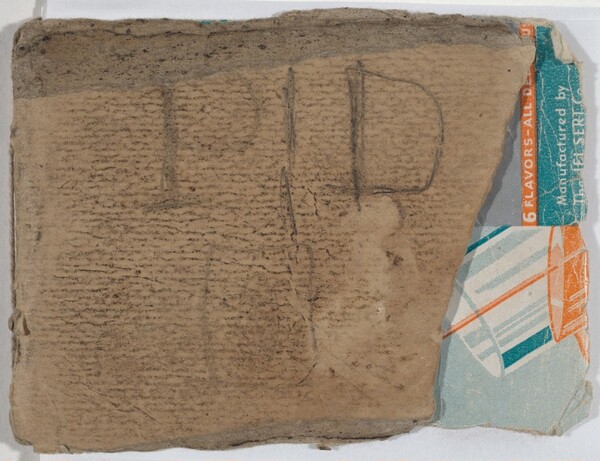 I D
6 FLAVORS—ALL
Manufactured by
The JEL SERT Co.